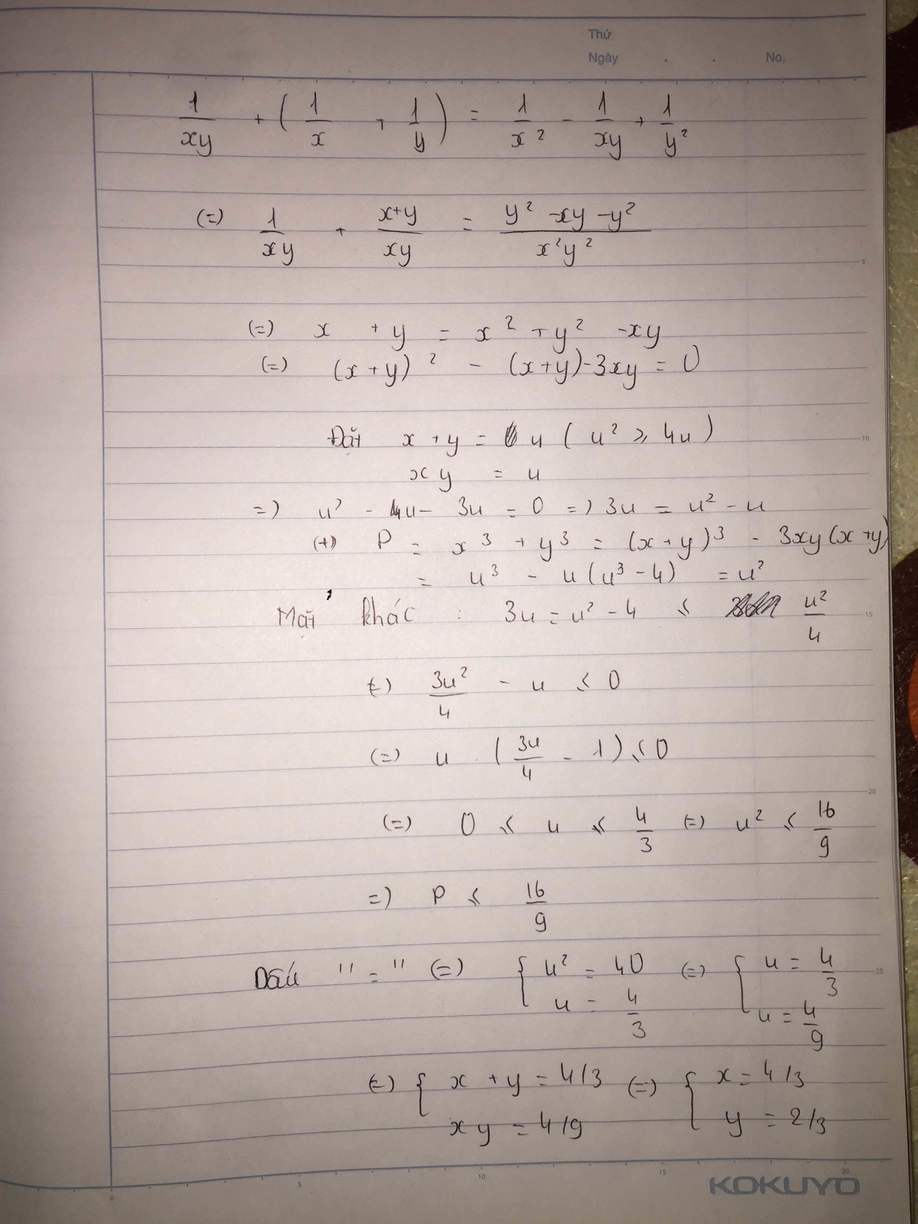 Thứ
Ngày . . No.
1/xy + (1/x + 1/y) = 1/x² - 1/xy + 1/y²
(=) 1/xy + x+y/xy = y² -xy -y²/x²y²
(=) x + y = x² + y² -xy
(=) (x+y)² - (x+y)-3xy = 0
Đặt x + y = u ( u² ≥ 4u )
xy = u
=) u² - 4u - 3u = 0 =) 3u = u² - u
(+) P = x³ + y³ = (x+y)³ - 3xy(x+y)
= u³ - u(u³-4) = u²
Mặt khác : 3u = u² - 4 ≤ u²/4
(=) 3u²/4 - u ≤ 0
(=) u . (3u/4 - 1) ≤ 0
(=) 0 ≤ u ≤ 4/3 (=) u² ≤ 16/9
=) P ≤ 16/9
Dấu "=" (=) { u² = 40 (=) { u = 4/3
u = 4/3 u = 4/9
(=) { x + y = 4/3 (=) { x = 4/3
xy = 4/9 y = 2/3
KOKUYO